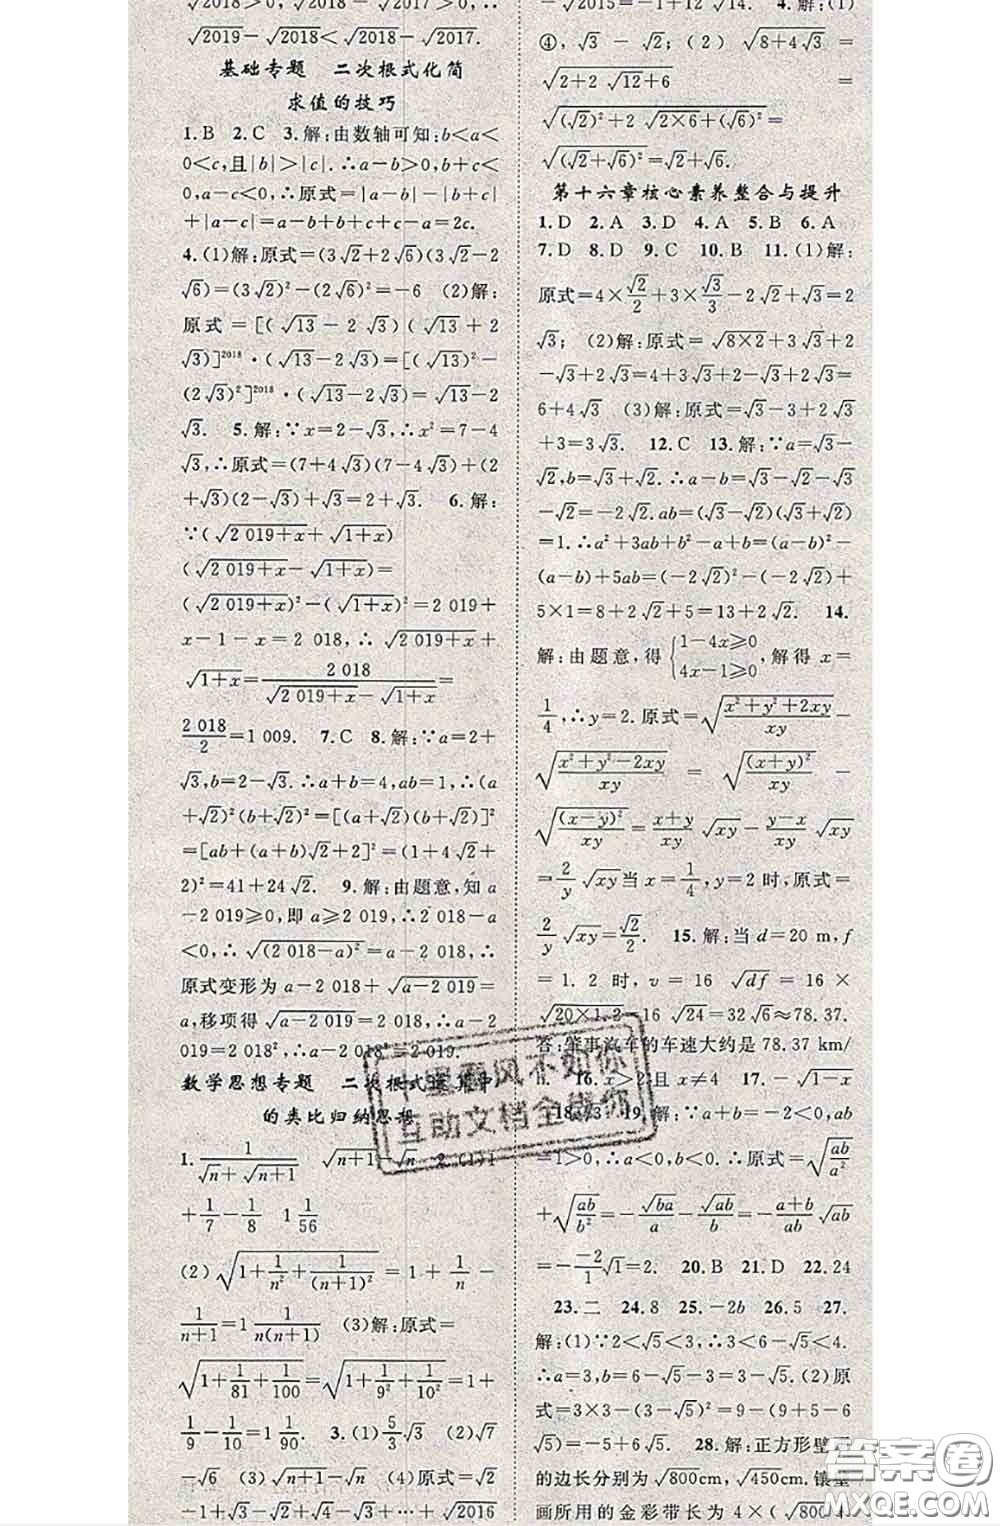 √2018>0,√2018-√2017>0,∴
√2019-√2018<√2018-√2017.
基础专题 二次根式化简
求值的技巧
1.B 2.C 3.解:由数轴可知:b<a<
0<c,且|b|>|c|.∴a-b>0,b+c<
0,a-c<0,∴原式=|a-b|-|b+c|
+|a-c|=a-b+b+c+c-a=2c.
4.(1)解:原式=(3√2+2√6)(3√2-2
√6)=(3√2)²-(2√6)²=-6 (2)解:
原式=[(√13-2√3)(√13+2
√3)]²⁰¹⁸·(√13-2√3)=[(√13)²-
(2√3)²]²⁰¹⁸·(√13-2√3)=√13-2
√3. 5.解:∵x=2-√3,∴x²=7-4
√3,∴原式=(7+4√3)(7-4√3)+(2
+√3)(2-√3)+√3=2+√3. 6.解:
∵(√(2 019+x)+√(1+x))
(√(2 019+x)-√(1+x))=
(√(2 019+x))²-(√(1+x))²=2 019+
x-1-x=2 018,∴√(2 019+x)+
√(1+x)=2 018/(√(2 019+x)-√(1+x))=
2 018/2=1 009. 7.C 8.解:∵a=2+
√3,b=2-√3.∴a+b=4,ab=1,∴(a
+√2)²(b+√2)²=[(a+√2)(b+√2)]²
=[ab+(a+b)√2+2]²=(1+4√2+
2)²=41+24√2. 9.解:由题意,知a
-2 019≥0,即a≥2 019,∴2 018-a
<0,∴√((2 018-a)²)=a-2 018,∴
原式变形为a-2 018+√(a-2 019)=
a,移项得√(a-2 019)=2 018,∴a-2
019=2 018²,∴a-2 018²=2 019.
数学思想专题 二次根式运算中
的类比归纳思想
1. 1/(√n+√(n+1)) √(n+1)-√n 2.(1)1
+1/7-1/8 1 1/56
(2)√(1+1/n²+1/(n+1)²)=1+1/n-
1/(n+1)=1 1/(n(n+1)) (3)解:原式=
√(1+1/81+1/100)=√(1+1/9²+1/10²)=1+
1/9-1/10=1 1/90. 3.(1)5/3√3 (2)√7
-√6 (3)√(n+1)-√n (4)原式=√2
-1+√3-√2+√4-√3+⋯+√2016
-√2015=-1+12√14. 4.解:(1)
④,√3-√2;(2)√(8+4√3)=
√(2+2√12+6)=
√((√2)²+2√(2×6)+(√6)²)=
√((√2+√6)²)=√2+√6.
第十六章核心素养整合与提升
1.D 2.A 3.D 4.A 5.B 6.A
7.D 8.D 9.C 10.B 11.(1)解:
原式=4×√2/2+3×√3/3-2√2+√3=2
√3; (2)解:原式=√(8×2)+3√3+2
-√3+2√3=4+3√3+2-√3+2√3=
6+4√3 (3)解:原式=√3-3+2√3
+3=3√3. 12.C 13.解:∵a=√3-
√2,b=√3+√2.∴a-b=√3-√2-√3
-√2=-2√2.ab=(√3-√2)(√3+√2)
=1.∴a²+3ab+b²-a+b=(a-b)²-
(a-b)+5ab=(-2√2)²-(-2√2)+
5×1=8+2√2+5=13+2√2. 14.
解:由题意,得{1-4x≥0 4x-1≥0,解得x=
1/4,∴y=2.原式=√((x²+y²+2xy)/xy)-
√((x²+y²-2xy)/xy)=√((x+y)²/xy)-
√((x-y)²/xy)=(x+y)/xy√xy-(y-x)/xy√xy
=2/y√xy当x=1/4,y=2时,原式=
2/y√xy=√2/2. 15.解:当d=20 m,f
=1.2时,v=16√df=16×
√(20×1.2)=16√24=32√6≈78.37.
答:肇事汽车的车速大约是78.37 km/
h. 16.x>2且x≠4 17.-√(1-x)
18.3 19.解:∵a+b=-2,ab
=1>0,∴a<0,b<0.∴原式=√(ab/a²)
+√(ab/b²)=-√ba/a-√ab/b=-(a+b)/ab√ab
=-(-2)/1√1=2. 20.B 21.D 22.24
23.二 24.8 25.-2b 26.5 27.
解:(1)∵2<√5<3,∴3<6-√5<4.
∴a=3,b=6-√5-3=3-√5.(2)原
式=3×3-(3-√5)²=9-(9+5-6
√5)=-5+6√5. 28.解:正方形壁画
的边长分别为√800cm,√450cm.镶壁
画所用的金彩带长为4×(√800+
十里春风不如你
互助文档全靠你
答案圈
MXQE.COM